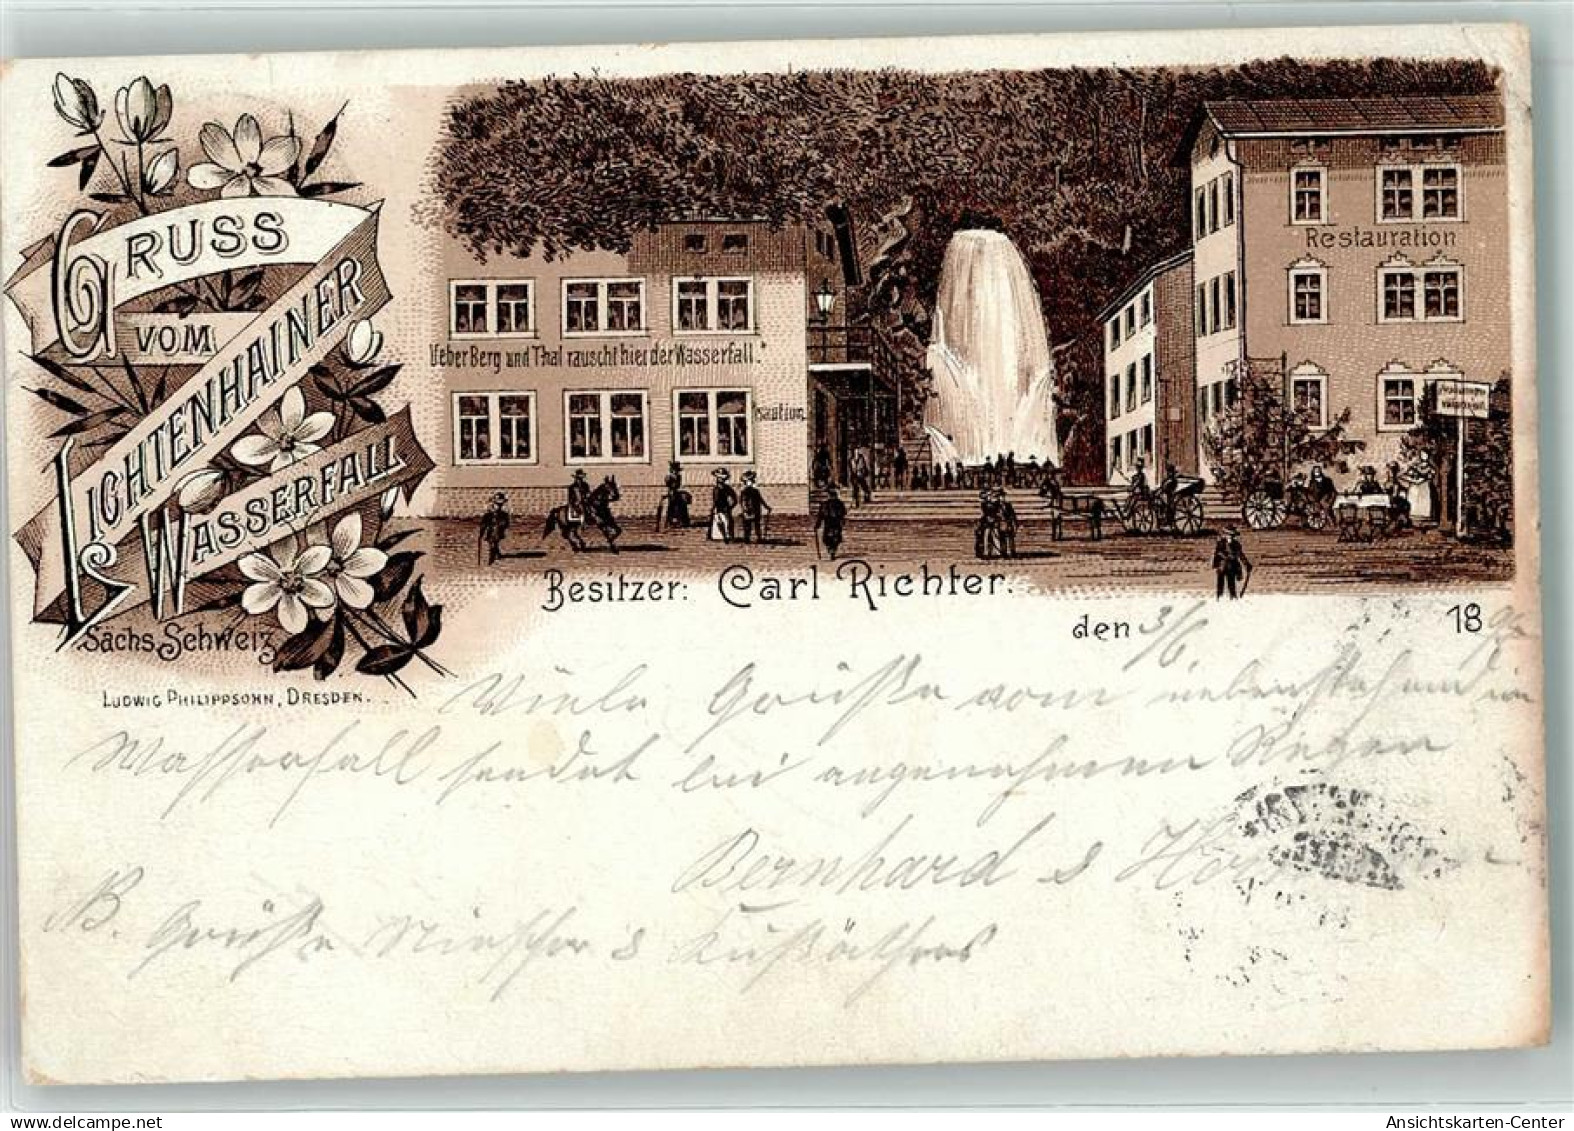 GRUSS
VOM
LICHTENHAINER
WASSERFALL
Sächs. Schweiz
LUDWIG PHILIPPSOHN, DRESDEN.
Ueber Berg und Thal rauscht hier der Wasserfall."
Restauration
Besitzer: Carl Richter.
den 3/6. 18
Viele Grüße vom nebenstehenden
Wasserfall sendet bei angenehmen Regen
Bernhard &
NB. Grüße
delcampe.net
Ansichtskarten-Center